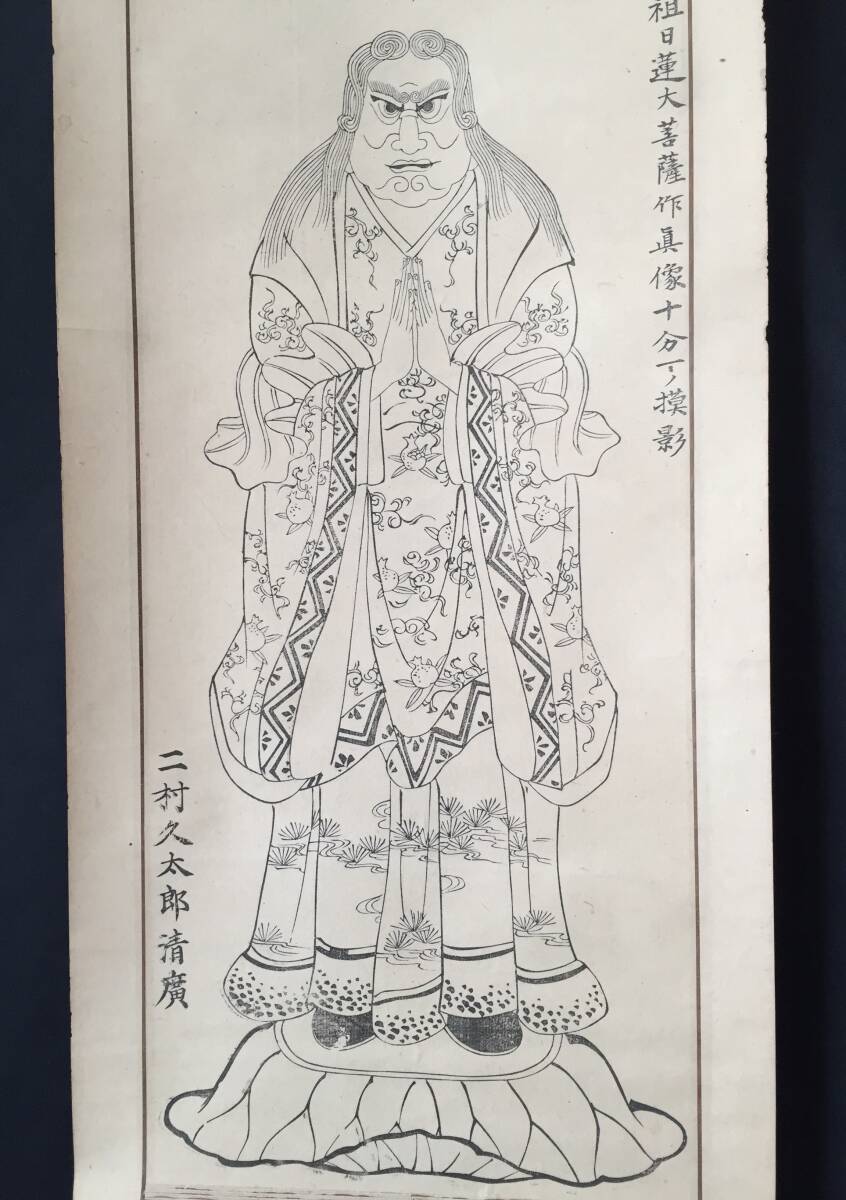 祖日蓮大菩薩作眞像十分一ノ摸影
二村久太郎清廣